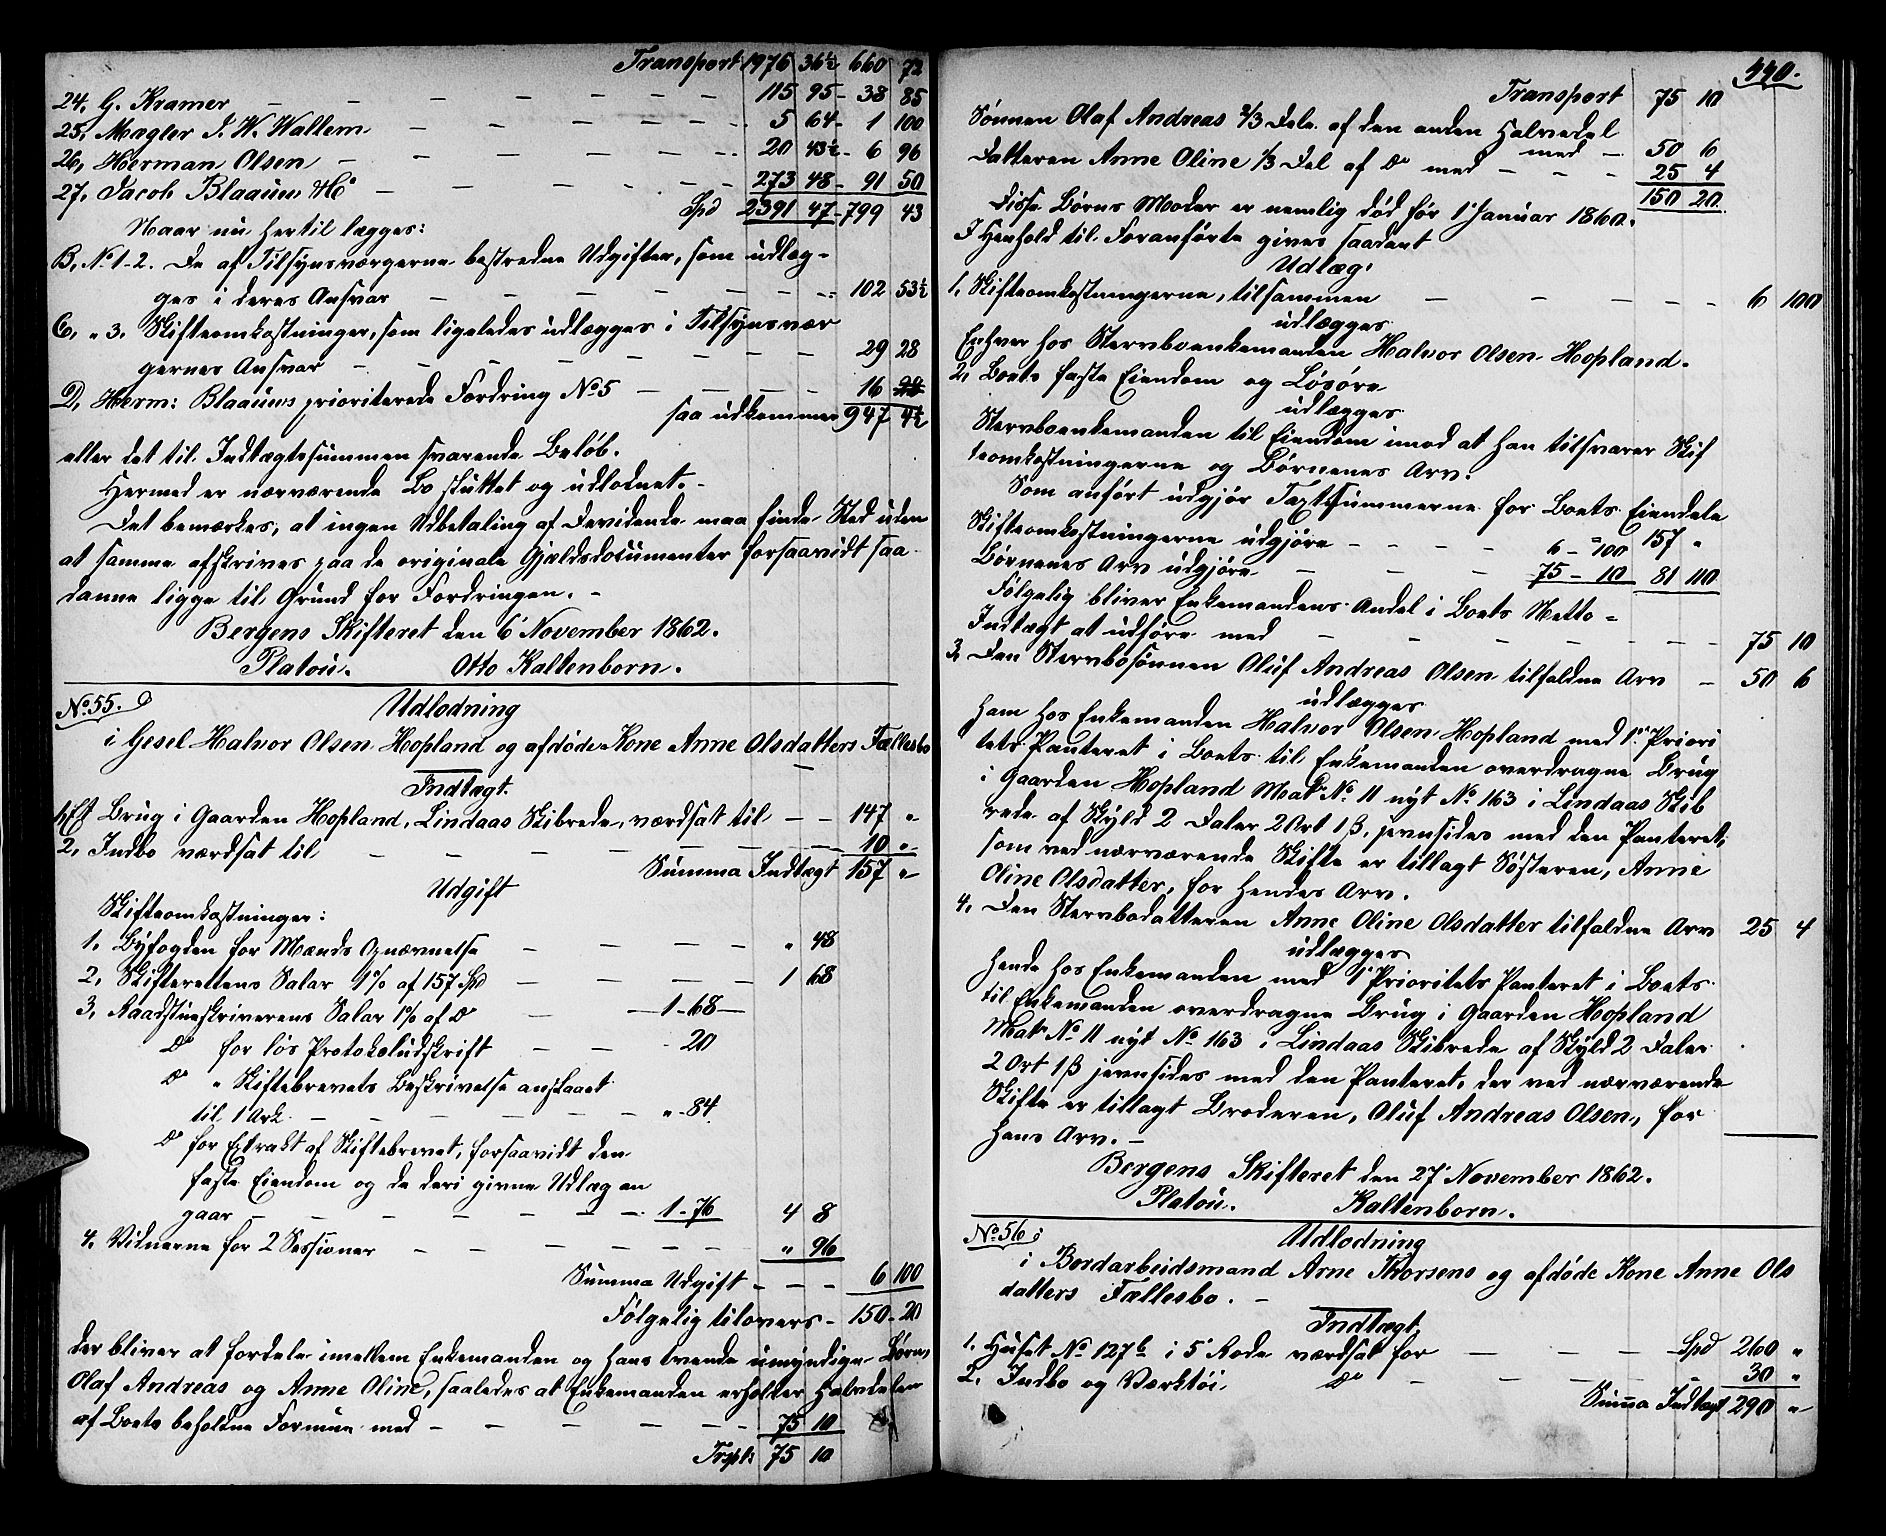 Transport 1976 36½ 660 72
24, G. Kramer — 115 95 - 38 85
25, Mægler J. W. Wallem — 5 64 - 1 100
26, Herman Olsen — 20 43½ - 6 96
27, Jacob Blaauw & Co — 273 48 - 91 50
Spd 2391 47 - 799 43
Naar nu hertil lægges:
B, No 1-2. De af Tilsynsværgerne bestredne Udgifter, som udlæg-
ges i deres Ansvar — 102 53½
C, " 3. Skifteomkostninger, som ligeledes udlægges i Tilsynsvær
gernes Ansvar — 29 28
D, Herm: Blaauws prioriterede Fordring No 5 — 16
saa udkommer 947 4½
eller det til Indtægtssummen svarende Beløb.
Hermed er nærværende Bo sluttet og udloddet. -
Det bemærkes, at ingen Udbetaling af Devidende maa finde Sted uden
at samme afskrives paa de originale Gjældsdocumenter forsaavidt saa-
danne ligge til Grund for Fordringen. -
Bergens Skifteret den 6' November 1862.
Platou. Otto Kaltenborn.
No. 55.
Udlodning
i Gesel Halvor Olsen Hopland og afdøde Kone Anne Olsdatters Fællesbo
Indtægt.
1, Et Brug i Gaarden Hopland, Lindaas Skibrede, værdsat til — 147 "
2, Indbo værdsat til — 10 "
Summa Indtægt 157 "
Udgift
Skifteomkostninger:
1. Byfogden for Mænds Opnævnelse — " 48
2, Skifterettens Salar 1% af 157 Spd — 1 68
3, Raadstueskriverens Salar 1% af Do — 1-68 —
Do for løs Protokoludskrift — 20
Do " Skiftebrevets Beskrivelse anslaaet
til 1 Ark. — " - 84.
Do for Extrakt af Skiftebrevet, forsaavidt den
faste Eiendom og de deri givne Udlæg an
gaar — 1-76 4 8
4. Vidnerne for 2 Sessioner — " 96
Summa Udgift - — 6 100
Følgelig tilovers - 150 - 20
der bliver at fordele imellem Enkemanden og hans tvende umyndige Børn,
Olaf Andreas og Anne Oline, saaledes at Enkemanden erholder Halvdelen
af Boets beholdne Formue med — 75 10
Trspt: 75 10
440.
Transport 75 10
Sønnen Olaf Andreas 2/3 Dele af den anden Halvedel
med — 50 6
Datteren Anne Oline 1/3 Del af Do med — 25 4
150 20
Disse Børns Moder er nemlig død før 1' Januar 1860.
I Henhold til Foranførte gives saadant
Udlæg:
1, Skifteomkostningerne, tilsammen — 6 100
udlægges
Enhver hos Sterboenkemanden Halvor Olsen Hopland.
2, Boets faste Eiendom og Løsøre
udlægges
Stervboenkemanden til Eiendom imod at han tilsvarer Skif
teomkostningerne og Børnenes Arv.
Som anført udgjør Taxtsummerne for Boets Eiendele
157 "
Skifteomkostningerne udgjøre — 6 - 100
Børnenes Arv udgjøre — 75 - 10 81 110
Følgelig bliver Enkemandens Andel i Boets Netto-
Indtægt at udføre med — 75 10
3, Den Stervbosønnen Oluf Andreas Olsen tilfaldne Arv — 50 6
udlægges
ham hos Enkemanden Halvor Olsen Hopland med 1ste Priori
tets Panteret i Boets til Enkemanden overdragne Brug
i Gaarden Hopland Mat: No. 11 nyt No. 163 i Lindaas Skib
rede af Skyld 2 Daler 2 Ort 1 ß, jevnsides med den Panteret,
som ved nærværende Skifte er tillagt Søsteren, Anne
Oline Olsdatter, for hendes Arv.
4. Den Stervbodatteren Anne Oline Olsdatter tilfaldne Arv 25 4
udlægges
hende hos Enkemanden med 1' Prioritets Panteret i Boets
til Enkemanden overdragne Brug i Gaarden Hopland
Mat: No 11 nyt No 163 i Lindaas Skibrede af Skyld 2 Daler
2 Ort 1 ß jevnsides med den Panteret, der ved nærværende
Skifte er tillagt Broderen, Oluf Andreas Olsen, for
hans Arv. -
Bergens Skifteret den 27' November 1862.
Platou. Kaltenborn.
No. 56.
Udlodning
i Bordarbeidsmand Arne Thorsens og afdøde Kone Anne Ols
datters Fællesbo. -
Indtægt,
1. Huset No 127b i 5' Rode værdsat for — Spd 260 "
2. Indbo og Værktøi Do — 30 "
Summa Indtægt 290 "